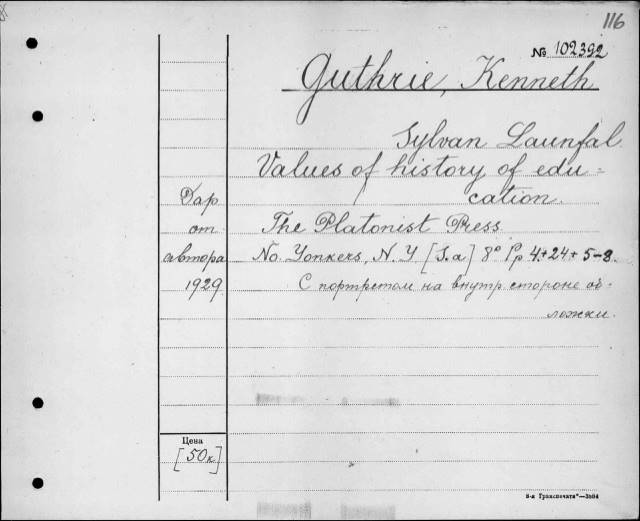 116
№ 102392
Guthrie, Kenneth
Sylvan Launfal
Values of history of edu-
cation.
The Platonist Press
No. Yonkers, N. Y [S.a] 8° Pp 4+24+5-8.
С портретом на внутр стороне об-
ложки.
Дар
от
автора
1929
Цена
[50к]
8-я Транспечати"—3594